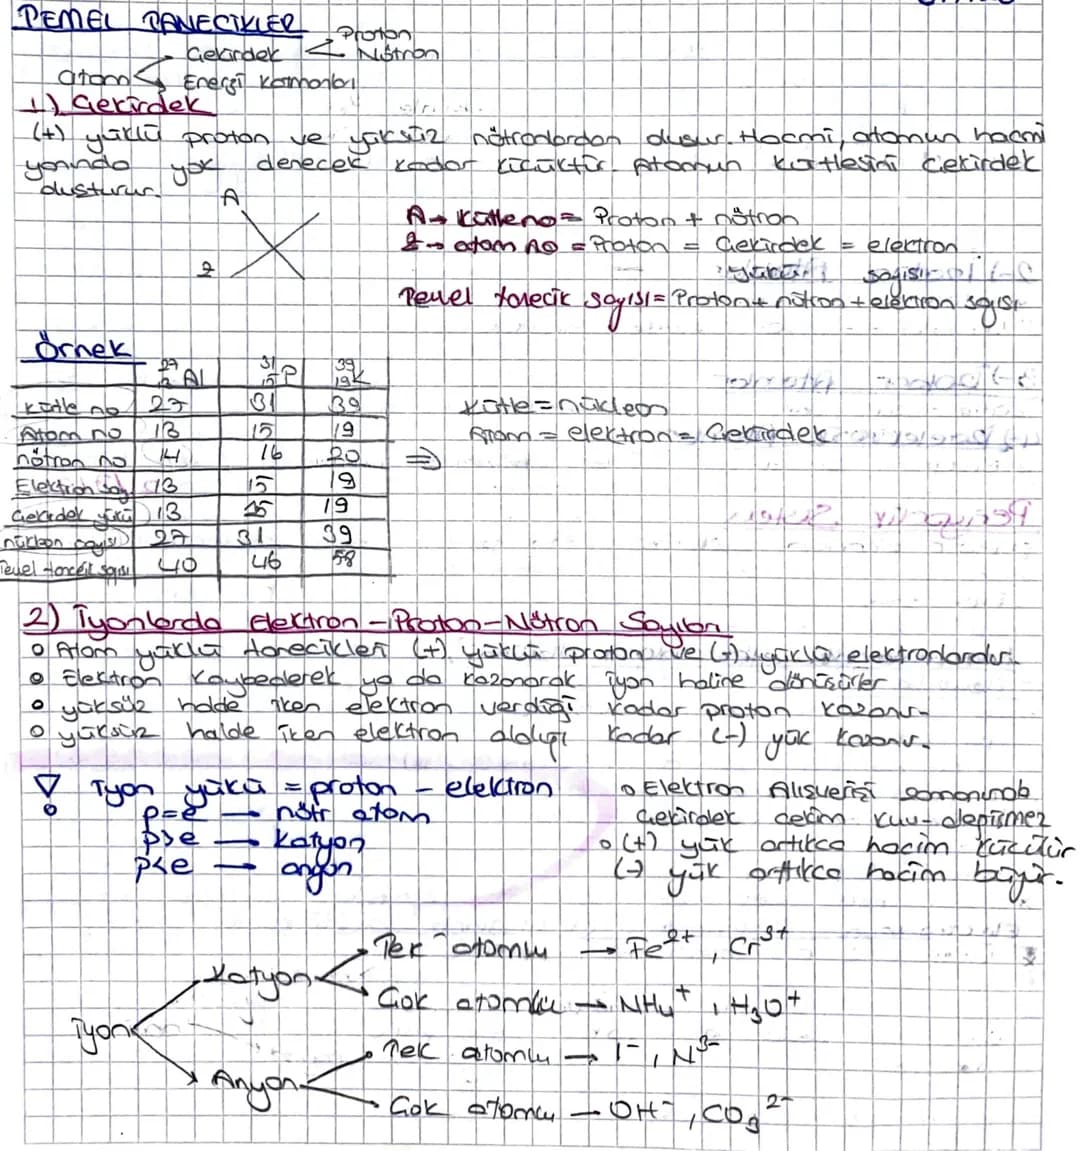 TEMEL TANECİKLER
Atom
Çekirdek
Proton
Nötron
Enerji Katmanları
1) Çekirdek
(+) yüklü proton ve yüksüz nötronlardan oluşur. Hacmi, atomun hacmi
yanında yok denecek kadar küçüktür. Atomun kütlesini çekirdek
oluşturur.
A
Z
A → Kütle no = Proton + nötron
Z → atom no = Proton = Çekirdek yükü = elektron sayısı
Temel tanecik sayısı = Proton + nötron + elektron sayısı
Örnek
27 13 Al 31 15 P 39 19 K
Kütle no 27 31 39
Atom no 13 15 19
nötron no 14 16 20
Elektron say. 13 15 19
Çekirdek yükü 13 15 19
nükleon sayısı 27 31 39
Temel tanecik sayısı 40 46 58
⇒
Kütle = nükleon
Atom = elektron = Çekirdek
2) İyonlarda Elektron - Proton - Nötron Sayıları
o Atom yüklü tanecikleri (+) yüklü proton ve (-) yüklü elektronlardır.
o Elektron kaybederek ya da kazanarak iyon haline dönüşürler
o yüksüz halde iken elektron verdiği kadar proton kazanır.
o yüksüz halde iken elektron aldığı kadar (-) yük kazanır.
İyon yükü = proton - elektron
p=e → nötr atom
p>e → katyon
p<e → anyon
o Elektron Alışverişi sonrasında
Çekirdek çekim kuv. değişmez
o (+) yük arttıkça hacim küçülür
(-) yük arttıkça hacim büyür.
İyon
Katyon
Tek atomlu → Fe²⁺, Cr³⁺
Çok atomlu → NH₄⁺, H₃O⁺
Anyon
Tek atomlu → I⁻, N³⁻
Çok atomlu → OH⁻, CO₃²⁻